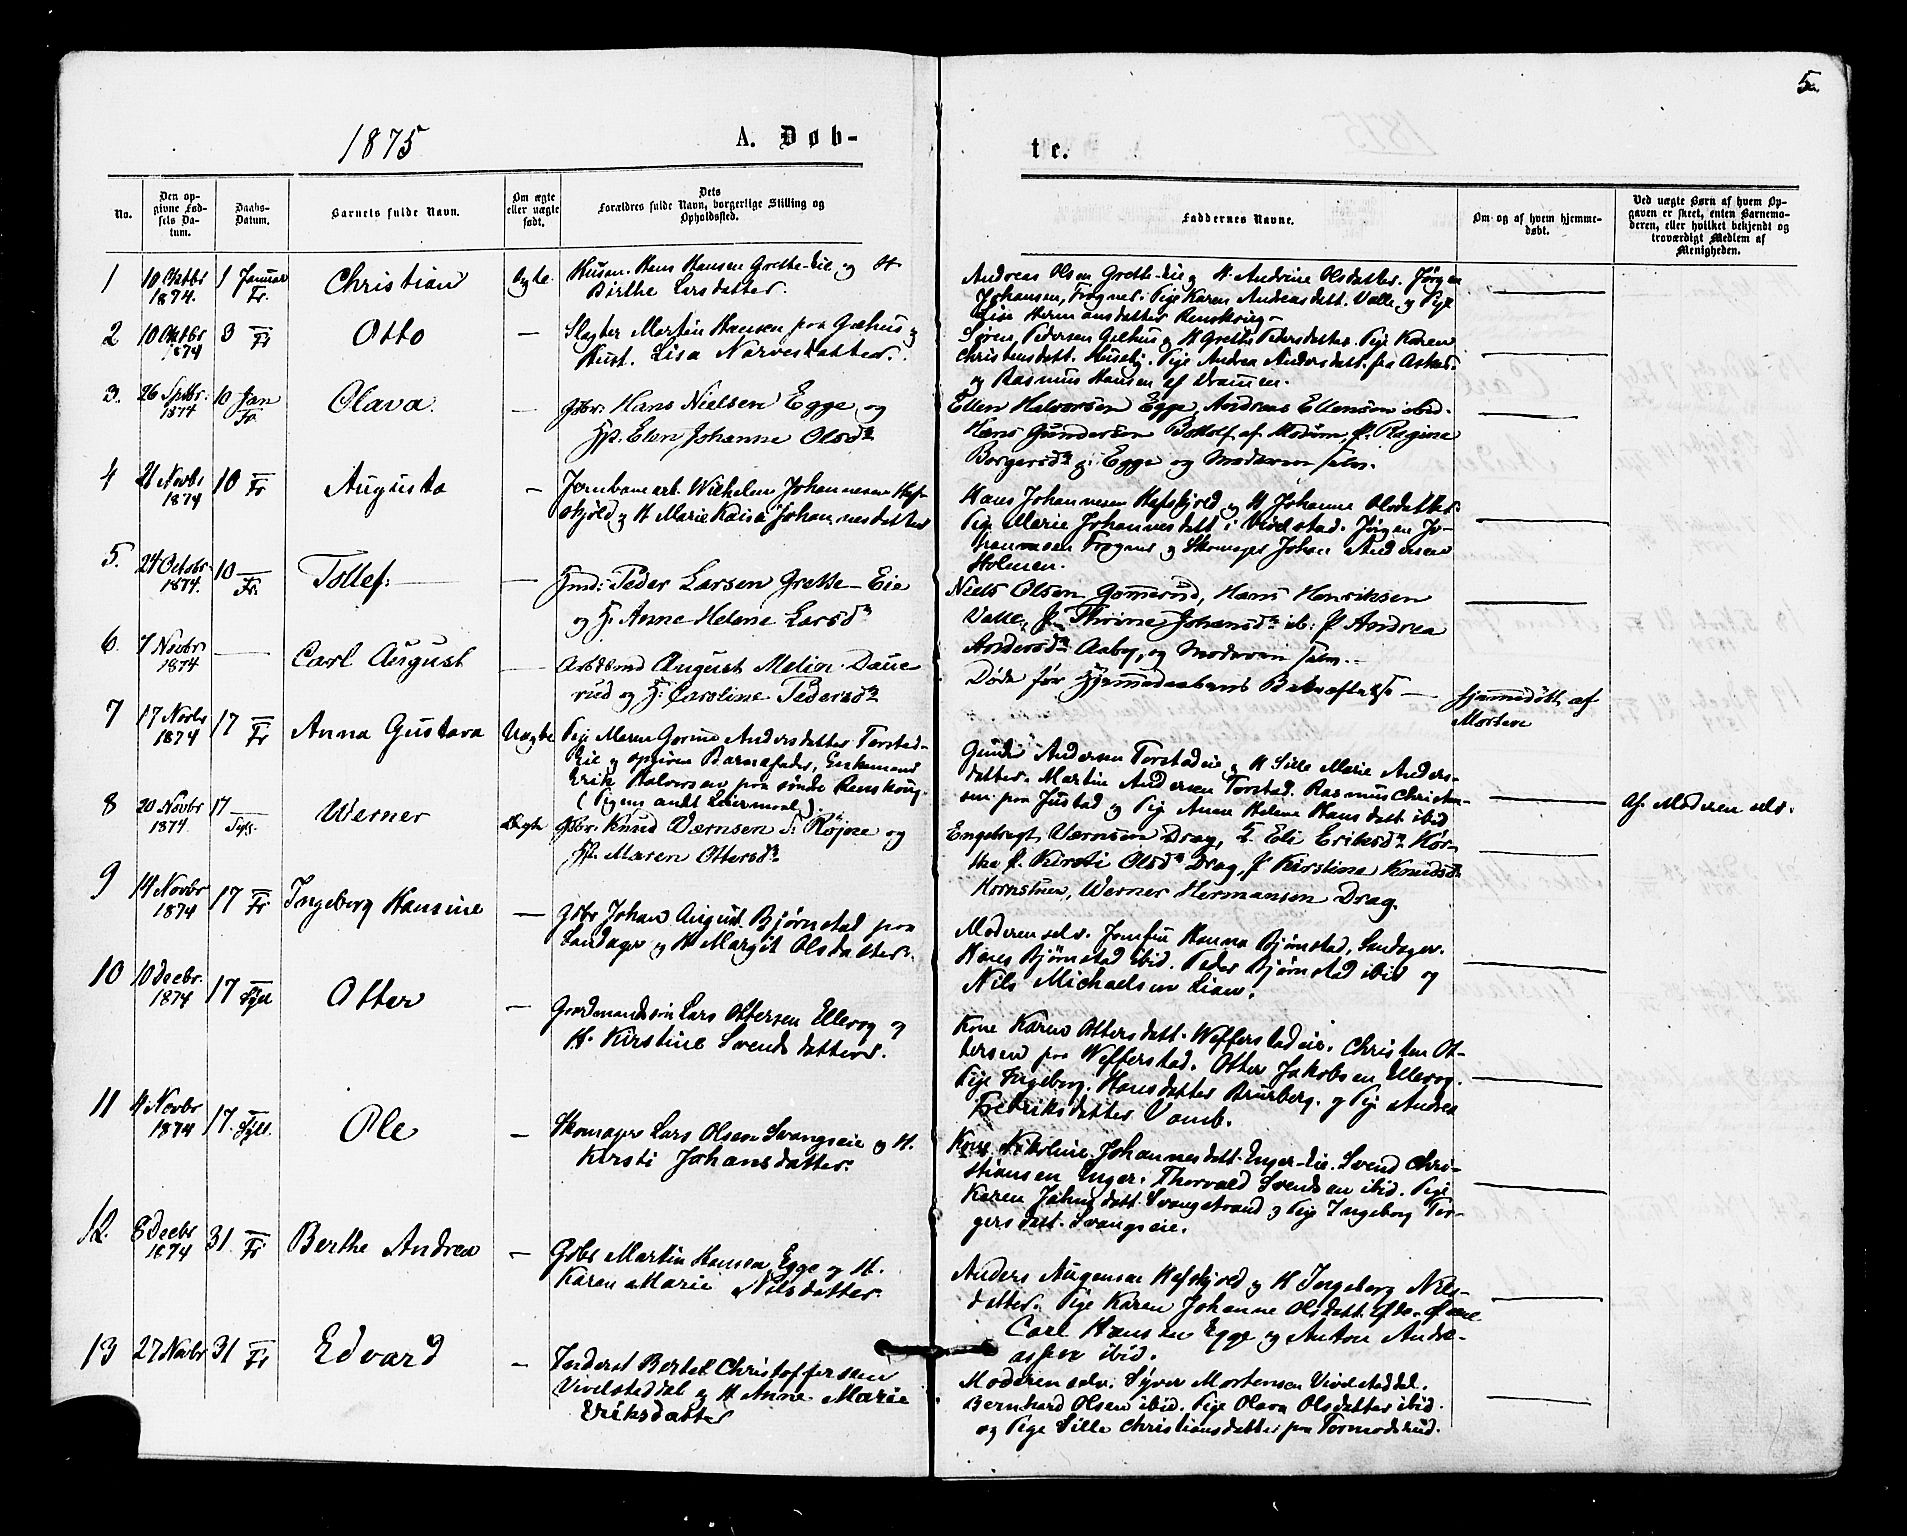 5
1875
A. Døb-
te.
No.
Den op-
givne Fød-
sels Da-
tum.
Daabs-
Datum.
Barnets fulde Navn.
Om ægte
eller uægte
født.
Dets
Forældres fulde Navn, borgerlige Stilling og
Opholdssted.
Faddernes Navne.
Om og af hvem hjemme-
døbt.
Ved uægte Børn af hvem Op-
gaven er skeet, enten Barnemo-
deren, eller hvilket bekjendt og
troværdigt Medlem af
Menigheden.
1
10 Oktbr
1874.
1 Januar
Fr.
Christian
Ægte
Husm. Hans Hansen Grette-Eie og H.
Birthe Larsdatter.
Andreas Olsen Grette-Eie og H. Andrine Olsdatter. Jørgen
Johansen, Frogner. Pige Karen Andreasdatt. Valle og Pige
Lise Hermansdatter
2
10 Oktbr
1874
3 — Fr
Otto
—
Slagter Martin Hansen paa Gælhus og
Hust. Lisa Narvesdatter.
Søren Pedersen Gælhus og H Grethe Pedersdatter. Pige Karen
Christensdatt. Huseby. Pige Andrea Andersdatt. fra Asker
og Rasmus Hansen af Drammen.
3.
26 Septbr.
1874
10 Jan
Fr.
Olava.
—
Gbr. Hans Nielsen Egge og
Hst. Elen Johanne Olsdr
Ellen Halvorsen Egge, Andreas Ellensen ibid.
Hans Gundersen af Modum, P. Ragine
Borgersdr Egge og Moderen selv.
4
21 Novbr
1874
10 — Fr
Augusta
—
Jernbanearb. Wilhelm Johannesen Hafs-
kjold og H Marie Kaisa Johannesdatter
Hans Johannesen Hafskjold og H Johanne Olsdatter
Pige Marie Johannesdatt i Vivelstad. Jørgen Jo-
hannesen Frogner og Skomager Johan Andersen
Holmen.
5.
24 Octobr
1874.
10 — Fr.
Tollef.
—
Hmd: Peder Larsen Grette-Eie
og H. Anne Helene Larsdr
Niels Olsen Gommerud, Hans Henriksen
Valle, P. Thrine Johansdr ib: P Andrea
Andersdr Aaby, og Moderen selv.
6.
7 Novbr
1874
—
Carl August
—
Arbdsmd August Melin Daue
rud og H: Caroline Pedersdr
Døde før Hjemmedaabens Bekræftelse —
hjemmedøbt af
Morten
7
17 Novbr
1874
17 — Fr
Anna Gustava
Uægte
Pige Maren Gorine Andersdatter Torstad-
Eie og opgiven Barnefader, Enkemand
Erik Halvorsen paa søndre Renskoug.
(Pigens andet Leiermaal).
Gunder Andersen Torstadeie og H Sille Marie Anders-
datter. Martin Andersen Torstad. Rasmus Christen-
sen paa Justad og Pige Anne Helene Hansdatt ibid
Af Moderen selv.
8
20 Novbr
1874.
17 — Syll.
Werner
Ægte
Gbr. Knud Wærnsen Røjse og
Hst. Maren Ottersdr
Engebregt Wærnsen Drag, E. Eli Eriksdr
P. Kirsti Olsdr Drag, P Kirstine Knudsdr
Hornstuen, Werner Hermansen Drag.
9
14 Novbr
1874
17 — Fr
Ingeborg Hansine
—
Gbr Johan August Bjørnstad paa
Sandager og H Margit Olsdatter.
Moderen selv. Jomfru Hanna Bjørnstad, Sandager.
Hans Bjørnstad ibid. Peder Bjørnstad ibid og
Nils Michaelsen Lian.
10
10 Decbr.
1874
17 — Syll
Otter
—
Gaardmandssøn Lars Ottersen Ellerog og
H. Kirstine Svendsdatter.
Kone Karen Ottersdatt. Weffersladeie. Christen Ot-
tersen paa Wefferstad. Otter Jakobsen Ellerog.
Pige Ingeborg Hansdatter Bruberg. og Pige Andrea
Fredriksdatter Vamb.
11
4 Novbr
1874
17. — Syll.
Ole
—
Skomager Lars Olsen Svangseie og H.
Kirsti Johansdatter.
Kone Nikoline Johannesdatt. Enger-Eie. Svend Chri-
stiansen Enger. Thorvald Svendsen ibid. Pige
Karen Johnsdatt. Svangstrand og Pige Ingeborg Tor-
gersdatt. Svangseie.
12.
8 Decbr
1874
31. — Fr
Berthe Andrea
—
Gbr Martin Hansen Egge og H.
Karen Marie Nilsdatter.
Anders Augensen Hafskjold og H Ingeborg Nils-
datter. Pige Karen Johanne Olsdatt.
Carl Hansen Egge og Anton Andre-
assen ibid.
13
27 Novbr
31 — Fr
Edvard
—
Inderst Bertel Christoffersen
Vivelstaddal og H Anne Marie
Eriksdatter
Moderen selv. Syver Mortensen Vivelstaddal.
Bernhard Olsen ibid. Pige Olava Olsdatter ibid.
og Pige Sille Christiansdatter paa Tormodsrud.